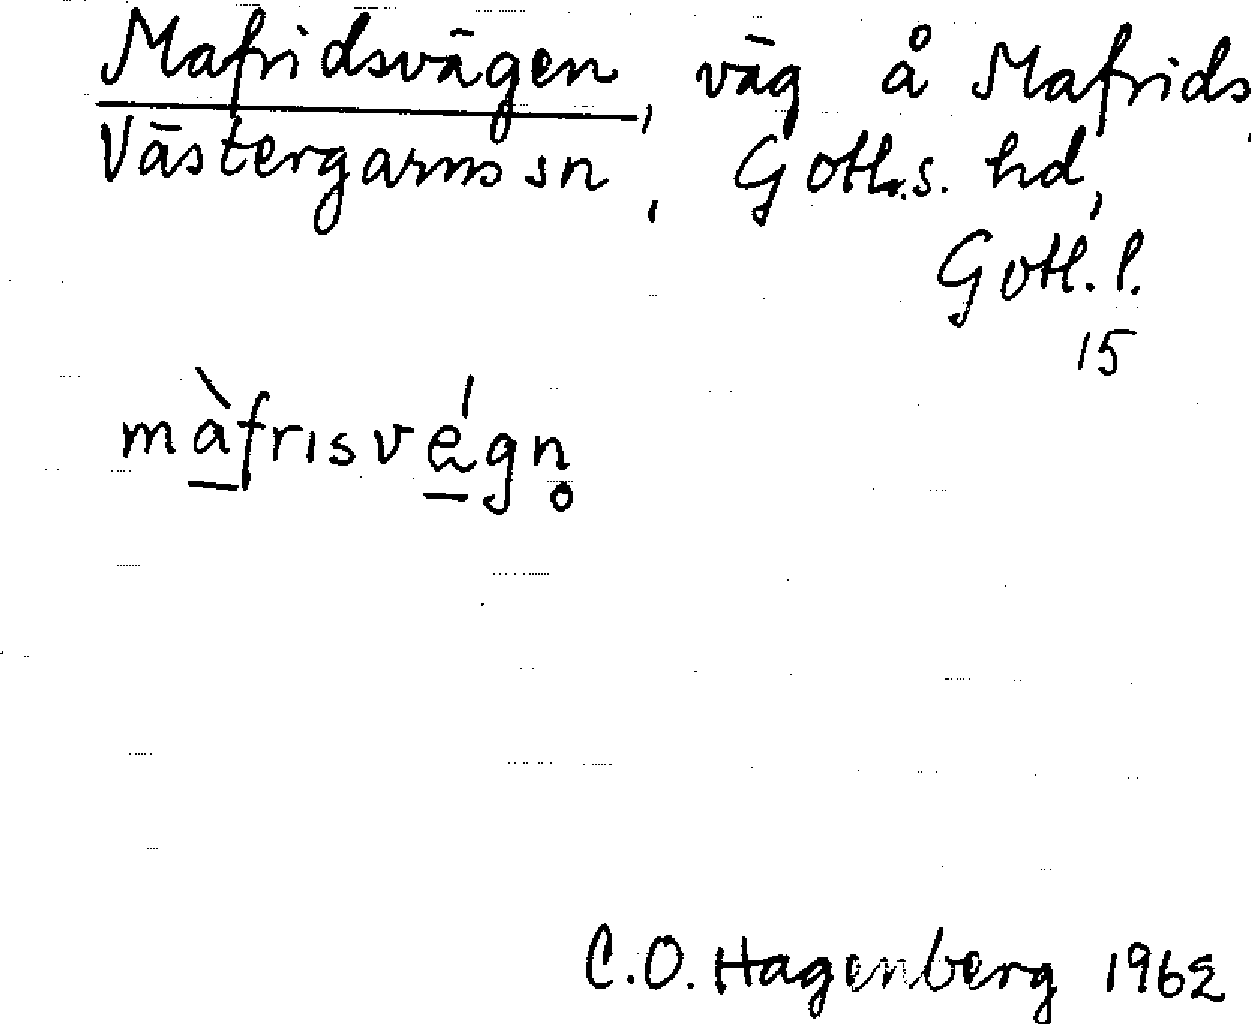 Mafridsvägen, väg å Mafrids,
Västergarns sn, Gotl.s. hd,
Gotl. l.
15
màfrisvégn̥
C.O. Hagenberg 1962